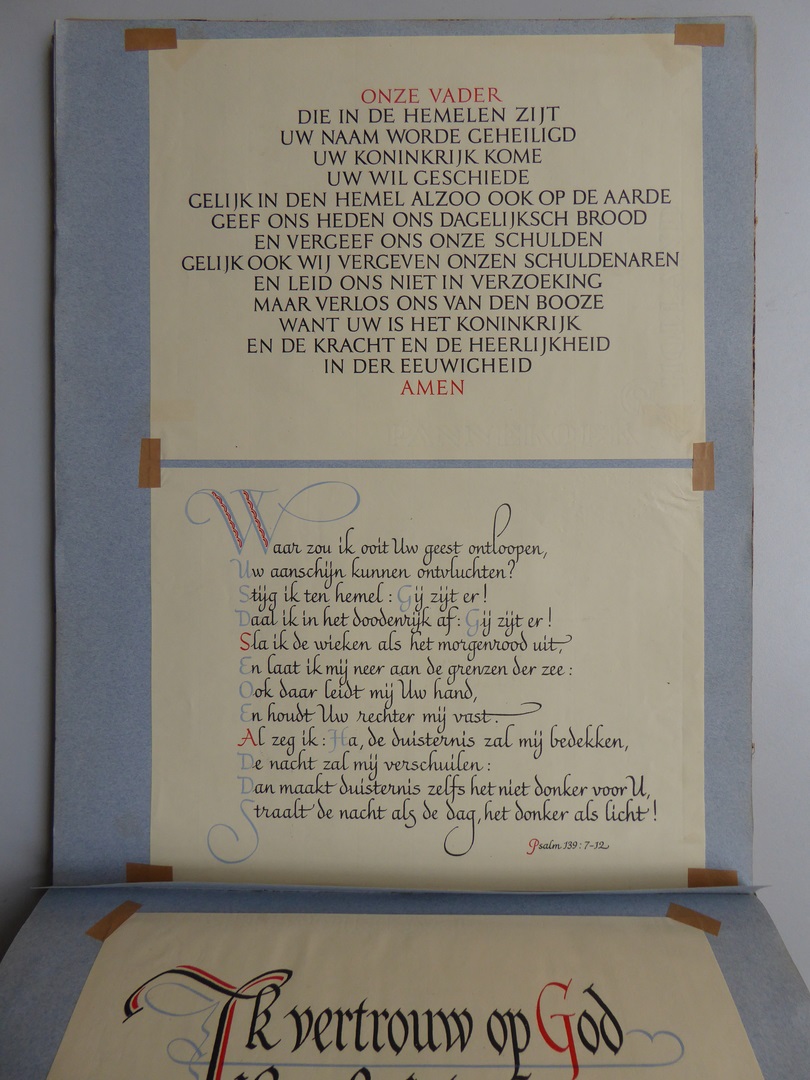 ONZE VADER
DIE IN DE HEMELEN ZIJT
UW NAAM WORDE GEHEILIGD
UW KONINKRIJK KOME
UW WIL GESCHIEDE
GELIJK IN DEN HEMEL ALZOO OOK OP DE AARDE
GEEF ONS HEDEN ONS DAGELIJKSCH BROOD
EN VERGEEF ONS ONZE SCHULDEN
GELIJK OOK WIJ VERGEVEN ONZEN SCHULDENAREN
EN LEID ONS NIET IN VERZOEKING
MAAR VERLOS ONS VAN DEN BOOZE
WANT UW IS HET KONINKRIJK
EN DE KRACHT EN DE HEERLIJKHEID
IN DER EEUWIGHEID
AMEN
Waar zou ik ooit Uw geest ontloopen,
Uw aanschijn kunnen ontvluchten?
Stijg ik ten hemel: Gij zijt er!
Daal ik in het doodenrijk af: Gij zijt er!
Sla ik de wieken als het morgenrood uit,
En laat ik mij neer aan de grenzen der zee:
Ook daar leidt mij Uw hand,
En houdt Uw rechter mij vast.
Al zeg ik: Ha, de duisternis zal mij bedekken,
De nacht zal mij verschuilen:
Dan maakt duisternis zelfs het niet donker voor U,
Straalt de nacht als de dag, het donker als licht!
Psalm 139: 7-12
Ik vertrouw op God